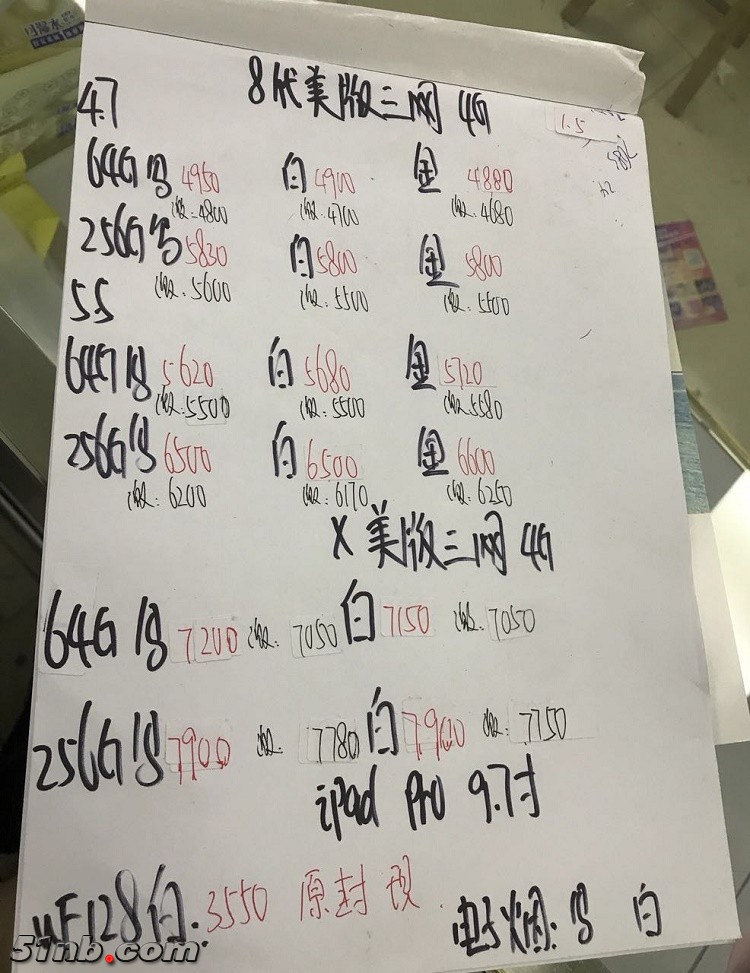 8代美版三网 4G
4.7
1.5
64G 黑 4950 白 4900 金 4880
激: 4800 激: 4700 激: 4680
256G 黑 5830 白 5800 金 5800
激: 5600 激: 5500 激: 5500
5.5
64G 黑 5620 白 5680 金 5720
激: 5500 激: 5500 激: 5580
256G 黑 6500 白 6500 金 6600
激: 6200 激: 6170 激: 6250
X 美版三网 4G
64G 黑 7200 激: 7050 白 7150 激: 7050
256G 黑 7900 激: 7780 白 7900 激: 7750
ipad Pro 9.7寸
wF128白: 3550 原封 现
电子烟: 黑 白
51nb.com